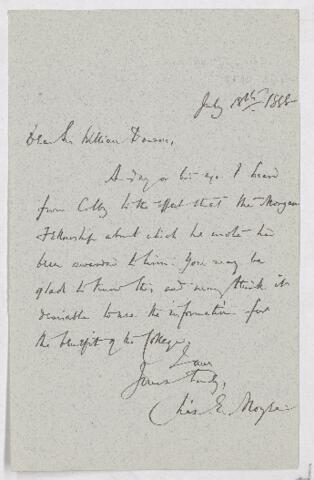 July 18th 1888
Dear Sir William Dawson,
A day or two ago I heard
from Colby to the effect that the Morgan
Fellowship about which he wrote had
been awarded to him. You may be
glad to know this and may think it
desirable to use the information for
the benefit of the College.
I am
Yours truly,
Chas E. Moyse